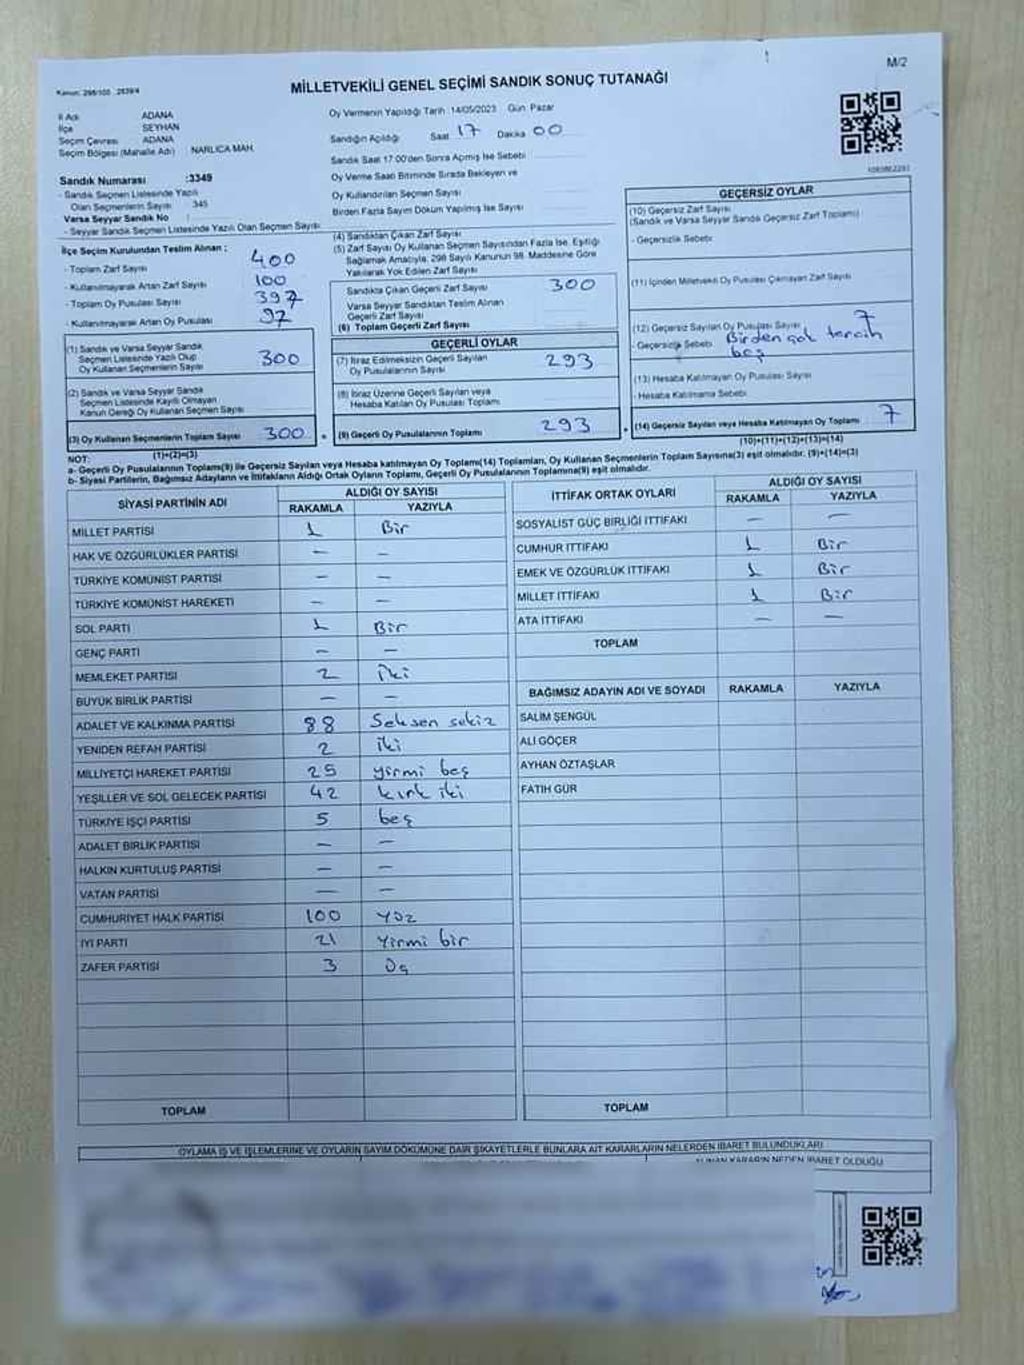 M/2
Kanun: 298/105 2839/4
MİLLETVEKİLİ GENEL SEÇİMİ SANDIK SONUÇ TUTANAĞI
İl Adı ADANA
İlçe SEYHAN
Seçim Çevresi ADANA
Seçim Bölgesi (Mahalle Adı) NARLICA MAH.
Sandık Numarası :3349
- Sandık Seçmen Listesinde Yazılı
Olan Seçmenlerin Sayısı 345
Varsa Seyyar Sandık No :
- Seyyar Sandık Seçmen Listesinde Yazılı Olan Seçmen Sayısı
Oy Vermenin Yapıldığı Tarih :14/05/2023 Gün: Pazar
Sandığın Açıldığı Saat 17 Dakika 00
Sandık Saat 17.00'den Sonra Açmış İse Sebebi
Oy Verme Saati Bitiminde Sırada Bekleyen ve
Oy Kullandırılan Seçmen Sayısı
Birden Fazla Sayım Döküm Yapılmış İse Sayısı
İlçe Seçim Kurulundan Teslim Alınan :
- Toplam Zarf Sayısı 400
- Kullanılmayarak Artan Zarf Sayısı 100
- Toplam Oy Pusulası Sayısı 397
- Kullanılmayarak Artan Oy Pusulası 97
(1) Sandık ve Varsa Seyyar Sandık
Seçmen Listesinde Yazılı Olup
Oy Kullanan Seçmenlerin Sayısı 300
(2) Sandık ve Varsa Seyyar Sandık
Seçmen Listesinde Kayıtlı Olmayan
Kanun Gereği Oy Kullanan Seçmen Sayısı
(3) Oy Kullanan Seçmenlerin Toplam Sayısı 300
(1)+(2)=(3)
(4) Sandıktan Çıkan Zarf Sayısı
(5) Zarf Sayısı Oy Kullanan Seçmen Sayısından Fazla İse, Eşitliği
Sağlamak Amacıyla, 298 Sayılı Kanunun 98. Maddesine Göre
Yakılarak Yok Edilen Zarf Sayısı
Sandıkta Çıkan Geçerli Zarf Sayısı 300
Varsa Seyyar Sandıktan Teslim Alınan
Geçerli Zarf Sayısı
(6) Toplam Geçerli Zarf Sayısı
GEÇERLİ OYLAR
(7) İtiraz Edilmeksizin Geçerli Sayılan
Oy Pusulalarının Sayısı 293
(8) İtiraz Üzerine Geçerli Sayılan veya
Hesaba Katılan Oy Pusulası Toplamı
(9) Geçerli Oy Pusulalarının Toplamı 293
GEÇERSİZ OYLAR
(10) Geçersiz Zarf Sayısı
(Sandık ve Varsa Seyyar Sandık Geçersiz Zarf Toplamı)
- Geçersizlik Sebebi
(11) İçinden Milletvekili Oy Pusulası Çıkmayan Zarf Sayısı
(12) Geçersiz Sayılan Oy Pusulası Sayısı 7
- Geçersizlik Sebebi Birden çok tercih
(13) Hesaba Katılmayan Oy Pusulası Sayısı
- Hesaba Katılmama Sebebi
(14) Geçersiz Sayılan veya Hesaba Katılmayan Oy Toplamı 7
(10)+(11)+(12)+(13)=(14)
NOT:
a- Geçerli Oy Pusulalarının Toplamı(9) ile Geçersiz Sayılan veya Hesaba katılmayan Oy Toplamı(14) Toplamları, Oy Kullanan Seçmenlerin Toplam Sayısına(3) eşit olmalıdır. (9)+(14)=(3)
b- Siyasi Partilerin, Bağımsız Adayların ve İttifakların Aldığı Ortak Oyların Toplamı, Geçerli Oy Pusulalarının Toplamına(9) eşit olmalıdır.
SİYASİ PARTİNİN ADI ALDIĞI OY SAYISI
RAKAMLA YAZIYLA
MİLLET PARTİSİ 1 Bir
HAK VE ÖZGÜRLÜKLER PARTİSİ — —
TÜRKİYE KOMÜNİST PARTİSİ — —
TÜRKİYE KOMÜNİST HAREKETİ — —
SOL PARTİ 1 Bir
GENÇ PARTİ — —
MEMLEKET PARTİSİ 2 iki
BÜYÜK BİRLİK PARTİSİ — —
ADALET VE KALKINMA PARTİSİ 88 Seksen sekiz
YENİDEN REFAH PARTİSİ 2 iki
MİLLİYETÇİ HAREKET PARTİSİ 25 yirmi beş
YEŞİLLER VE SOL GELECEK PARTİSİ 42 kırk iki
TÜRKİYE İŞÇİ PARTİSİ 5 beş
ADALET BİRLİK PARTİSİ — —
HALKIN KURTULUŞ PARTİSİ — —
VATAN PARTİSİ — —
CUMHURİYET HALK PARTİSİ 100 yüz
İYİ PARTİ 21 yirmi bir
ZAFER PARTİSİ 3 üç
TOPLAM
İTTİFAK ORTAK OYLARI ALDIĞI OY SAYISI
RAKAMLA YAZIYLA
SOSYALİST GÜÇ BİRLİĞİ İTTİFAKI — —
CUMHUR İTTİFAKI 1 Bir
EMEK VE ÖZGÜRLÜK İTTİFAKI 1 Bir
MİLLET İTTİFAKI 1 Bir
ATA İTTİFAKI — —
TOPLAM
BAĞIMSIZ ADAYIN ADI VE SOYADI RAKAMLA YAZIYLA
SALİM ŞENGÜL
ALİ GÖÇER
AYHAN ÖZTAŞLAR
FATİH GÜR
TOPLAM
OYLAMA İŞ VE İŞLEMLERİNE VE OYLARIN SAYIM DÖKÜMÜNE DAİR ŞİKAYETLERLE BUNLARA AİT KARARLARIN NELERDEN İBARET BULUNDUKLARI
ALINAN KARARIN NEDEN İBARET OLDUĞU